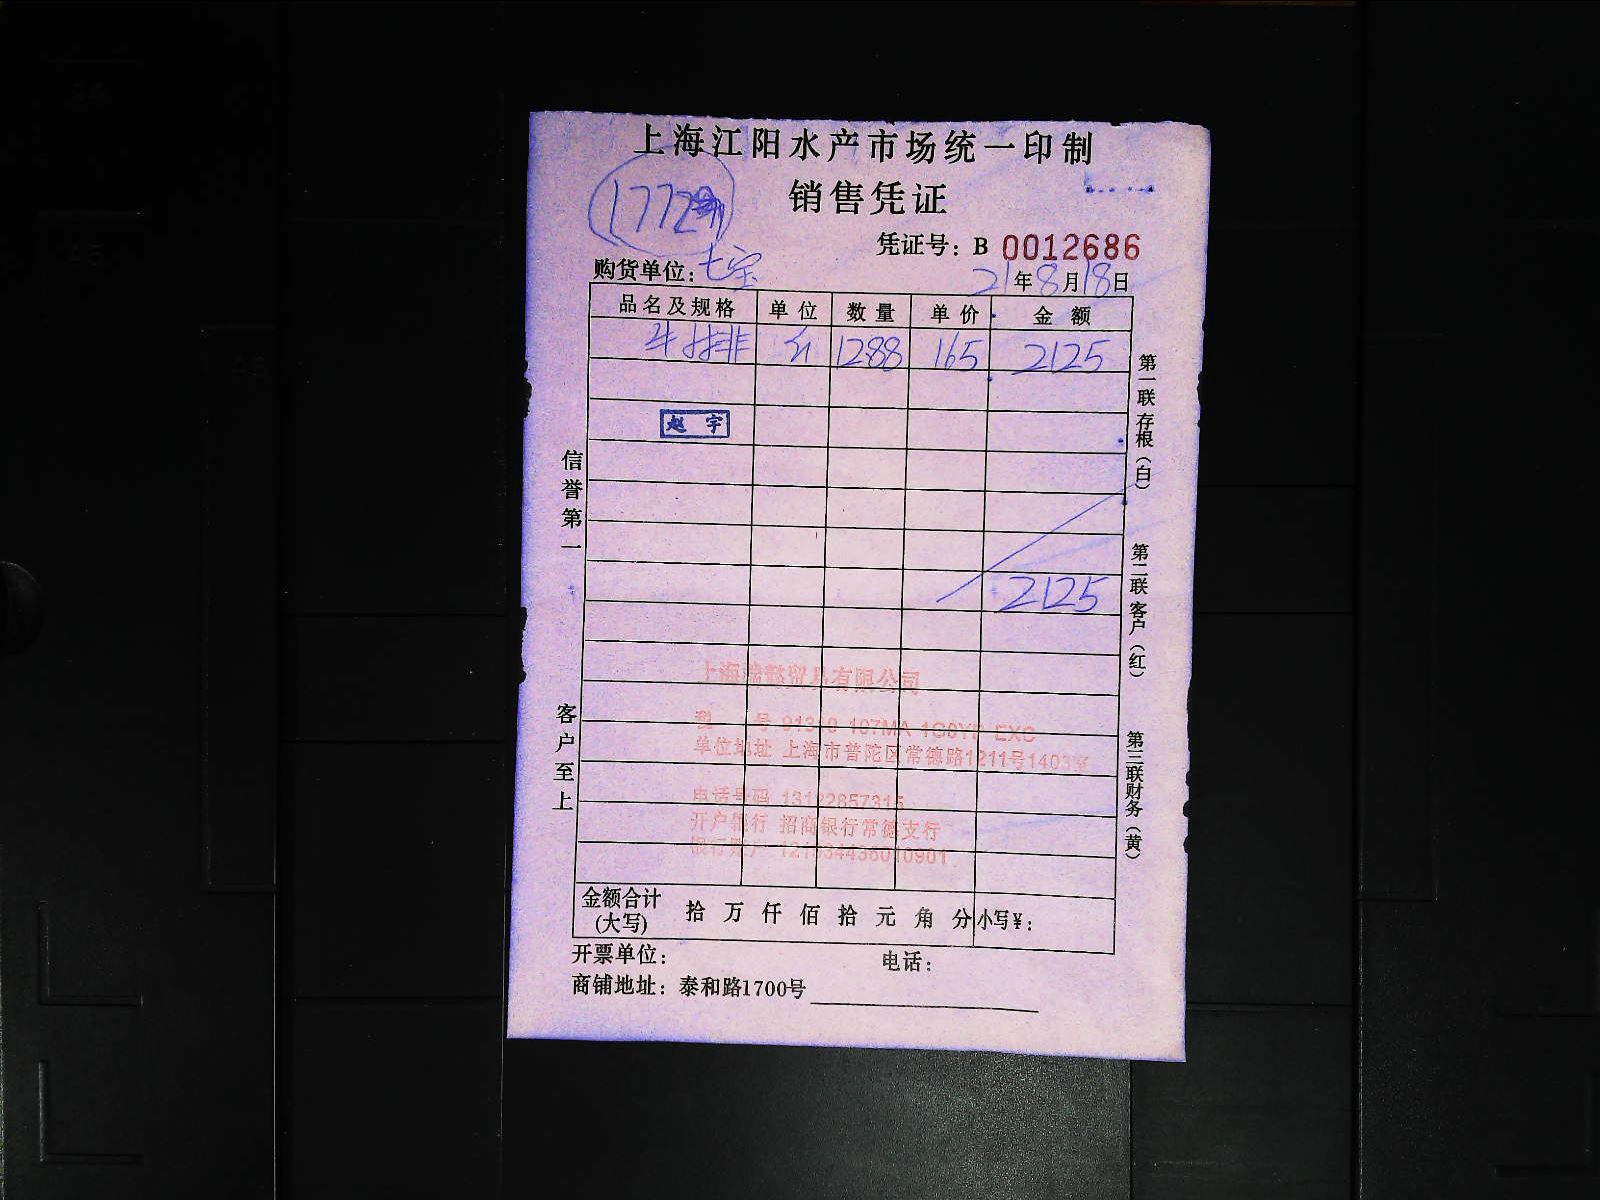 上海江阳水产市场统一印制
销售凭证
凭证号：B 0012686
购货单位：七宝 21年8月18日
品名及规格 单位 数量 单价 金额
牛排 1288 165 2125
赵宇
2125
信誉第一
客户至上
第一联存根（白）
第二联客户（红）
第三联财务（黄）
有限公司
号
单位地址 上海市普陀区常德路1211号1403室
电话号码
开户银行 招商银行常德支行
银行账户
金额合计（大写） 拾 万 仟 佰 拾 元 角 分 小写¥：
开票单位： 电话：
商铺地址：泰和路1700号